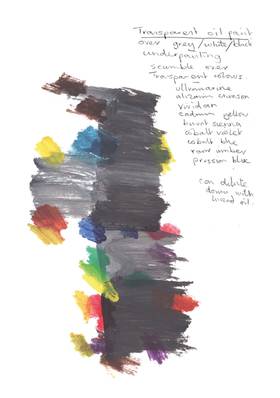 Transparent oil paint
over grey/white/black
underpainting
scumble over
Trasparent colours.
ultramarine
alizarin crimson
viridian
cadmium yellow
burnt sienna
cobalt violet
cobalt blue
raw umber
prussian blue
can dilute
down with
linseed oil